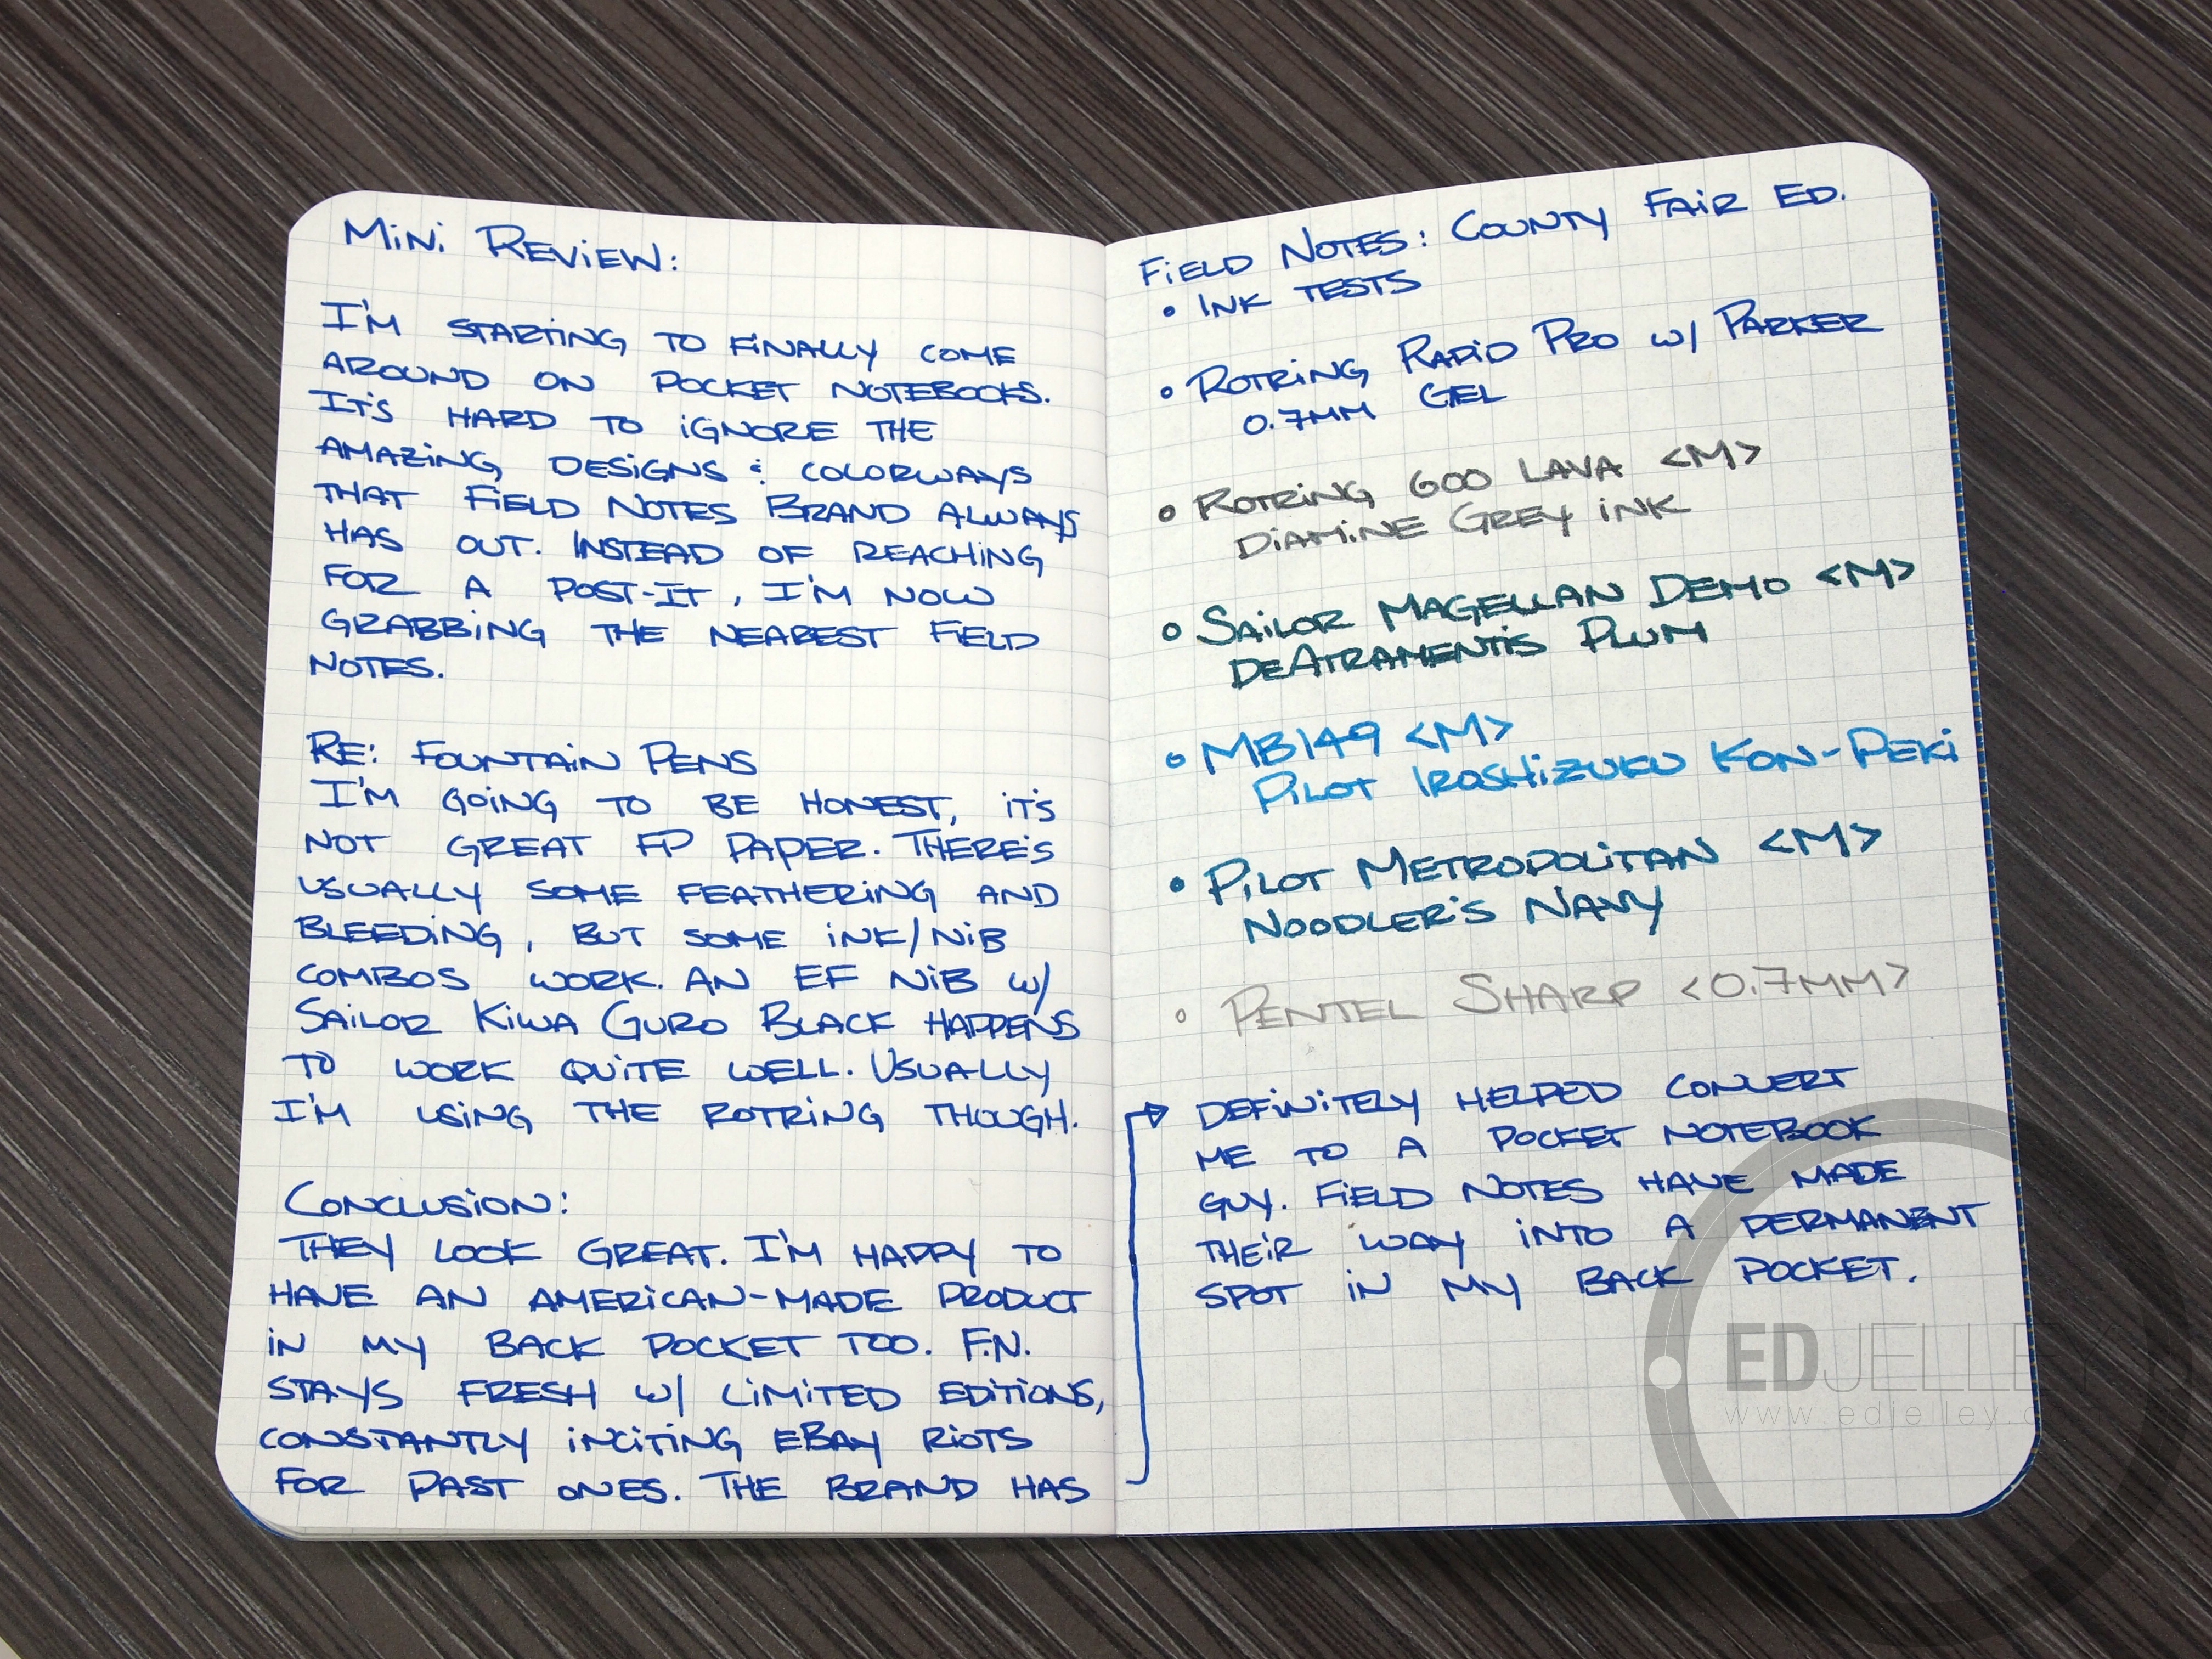 Mini Review:
I'm starting to finally come
around on pocket notebooks.
It's hard to ignore the
amazing designs & colorways
that Field Notes Brand always
has out. Instead of reaching
for a Post-it, I'm now
grabbing the nearest Field
Notes.
Re: Fountain Pens
I'm going to be honest, it's
not great FP paper. There's
usually some feathering and
bleeding, but some ink/nib
combos work. An EF nib w/
Sailor Kiwa Guro Black happens
to work quite well. Usually
I'm using the Rotring though.
Conclusion:
They look great. I'm happy to
have an American-made product
in my back pocket too. F.N.
stays fresh w/ limited editions,
constantly inciting eBay riots
for past ones. The brand has
Field Notes: County Fair Ed.
• Ink Tests
• Rotring Rapid Pro w/ Parker
0.7mm Gel
• Rotring 600 Lava <M>
Diamine Grey ink
• Sailor Magellan Demo <M>
DeAtramentis Plum
• MB149 <M>
Pilot Iroshizuku Kon-Peki
• Pilot Metropolitan <M>
Noodler's Navy
• Pentel Sharp <0.7mm>
definitely helped convert
me to a pocket notebook
guy. Field Notes have made
their way into a permanent
spot in my back pocket.
EDJELLEY
www.edjelley.c